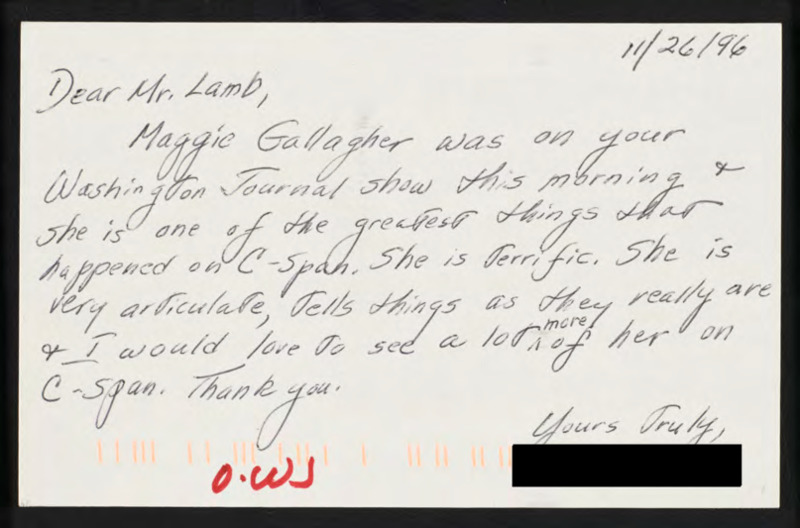 11/26/96
Dear Mr. Lamb,
Maggie Gallagher was on your
Washington Journal show this morning &
she is one of the greatest things that
happened on C-Span. She is terrific. She is
very articulate, tells things as they really are
& I would love to see a lot more of her on
C-Span. Thank you.
Yours Truly,
O.WJ